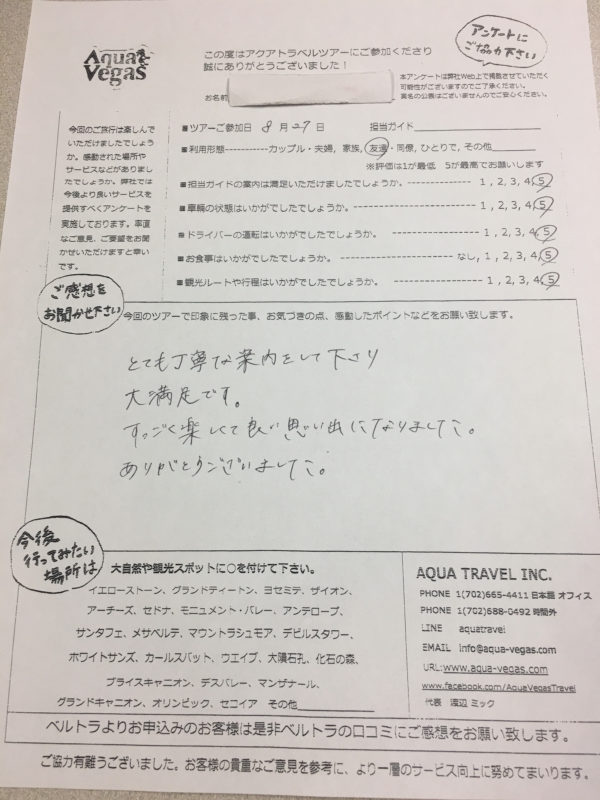 Aqua
Vegas
この度はアクアトラベルツアーにご参加くださり
誠にありがとうございました！
アンケートに
ご協力下さい
お名前
本アンケートは弊社Web上で掲載させていただく
可能性がございますのでご了承ください。
実名の公表はございませんのでご安心ください。
今回のご旅行は楽しんで
いただけましたでしょう
か。感動された場所や
サービスなどがありまし
たでしょうか。弊社では
今後より良いサービスを
提供すべくアンケートを
実施しております。率直
なご意見、ご要望をお聞
かせいただけますと幸い
です。
■ツアーご参加日 8月27日 担当ガイド
■利用形態-----------カップル・夫婦, 家族, 友達・同僚, ひとりで, その他
※評価は1が最低 5が最高でお願いします
■担当ガイドの案内は満足いただけましたでしょうか。---------------- 1, 2, 3, 4, 5
■車輌の状態はいかがでしたでしょうか。---------------- 1, 2, 3, 4, 5
■ドライバーの運転はいかがでしたでしょうか。---------------- 1, 2, 3, 4, 5
■お食事はいかがでしたでしょうか。---------------- なし, 1, 2, 3, 4, 5
■観光ルートや行程はいかがでしたでしょうか。---------------- 1, 2, 3, 4, 5
ご感想を
お聞かせ下さい
今回のツアーで印象に残った事、お気づきの点、感動したポイントなどをお願い致します。
とても丁寧な案内をして下さり
大満足です。
すっごく楽しくて良い思い出になりました。
ありがとうございました。
今後
行ってみたい
場所は
大自然や観光スポットに○を付けて下さい。
イエローストーン、グランドティートン、ヨセミテ、ザイオン、
アーチーズ、セドナ、モニュメント・バレー、アンテロープ、
サンタフェ、メサベルデ、マウントラシュモア、デビルスタワー、
ホワイトサンズ、カールスバット、ウエイブ、大隕石孔、化石の森、
ブライスキャニオン、デスバレー、マンザナール、
グランドキャニオン、オリンピック、セコイア その他
AQUA TRAVEL INC.
PHONE 1(702)665-4411 日本語 オフィス
PHONE 1(702)688-0492 時間外
LINE aquatravel
EMAIL info@aqua-vegas.com
URL:www.aqua-vegas.com
www.facebook.com/AquaVegasTravel
代表 渡辺 ミック
ベルトラよりお申込みのお客様は是非ベルトラの口コミにご感想をお願い致します。
ご協力有難うございました。お客様の貴重なご意見を参考に、より一層のサービス向上に努めてまいります。